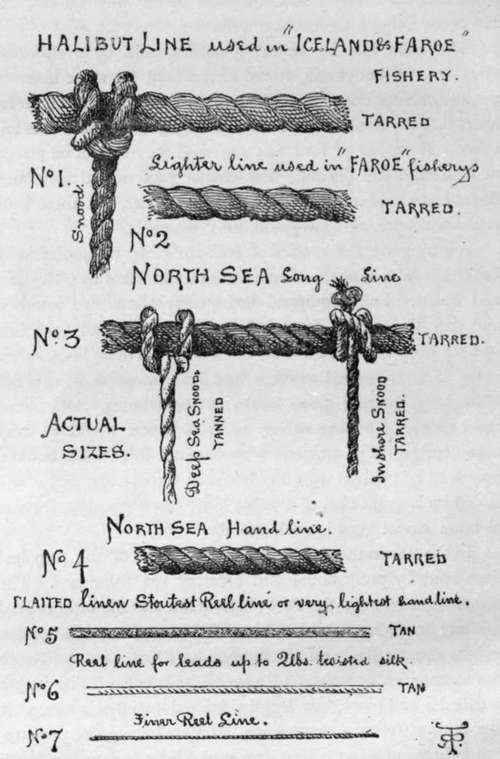 HALIBUT LINE used in "ICELAND & FAROE"
FISHERY.
TARRED
No 1.
Snood.
Lighter line used in "FAROE" fisherys
TARRED.
No 2
NORTH SEA Long Line
No 3
TARRED.
Deep Sea Snood.
TANNED
Inshore Snood
TARRED.
ACTUAL
SIZES.
NORTH SEA Hand line.
No 4
TARRED
PLAITED linen Stoutest Reel line or very lightest hand line.
No 5
TAN
Reel line for leads up to 2lbs. twisted silk.
No 6
TAN
Finer Reel Line.
No 7